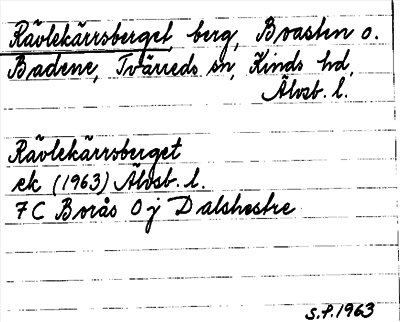 Rävlekärrsberget berg, Boasten o.
Badene, Tvärreds sn, Kinds hd,
Älvsb. l.
Rävlekärrsberget
ek (1963) Älvsb. l.
7 C Borås 0 j Dalshestre
S.F. 1963